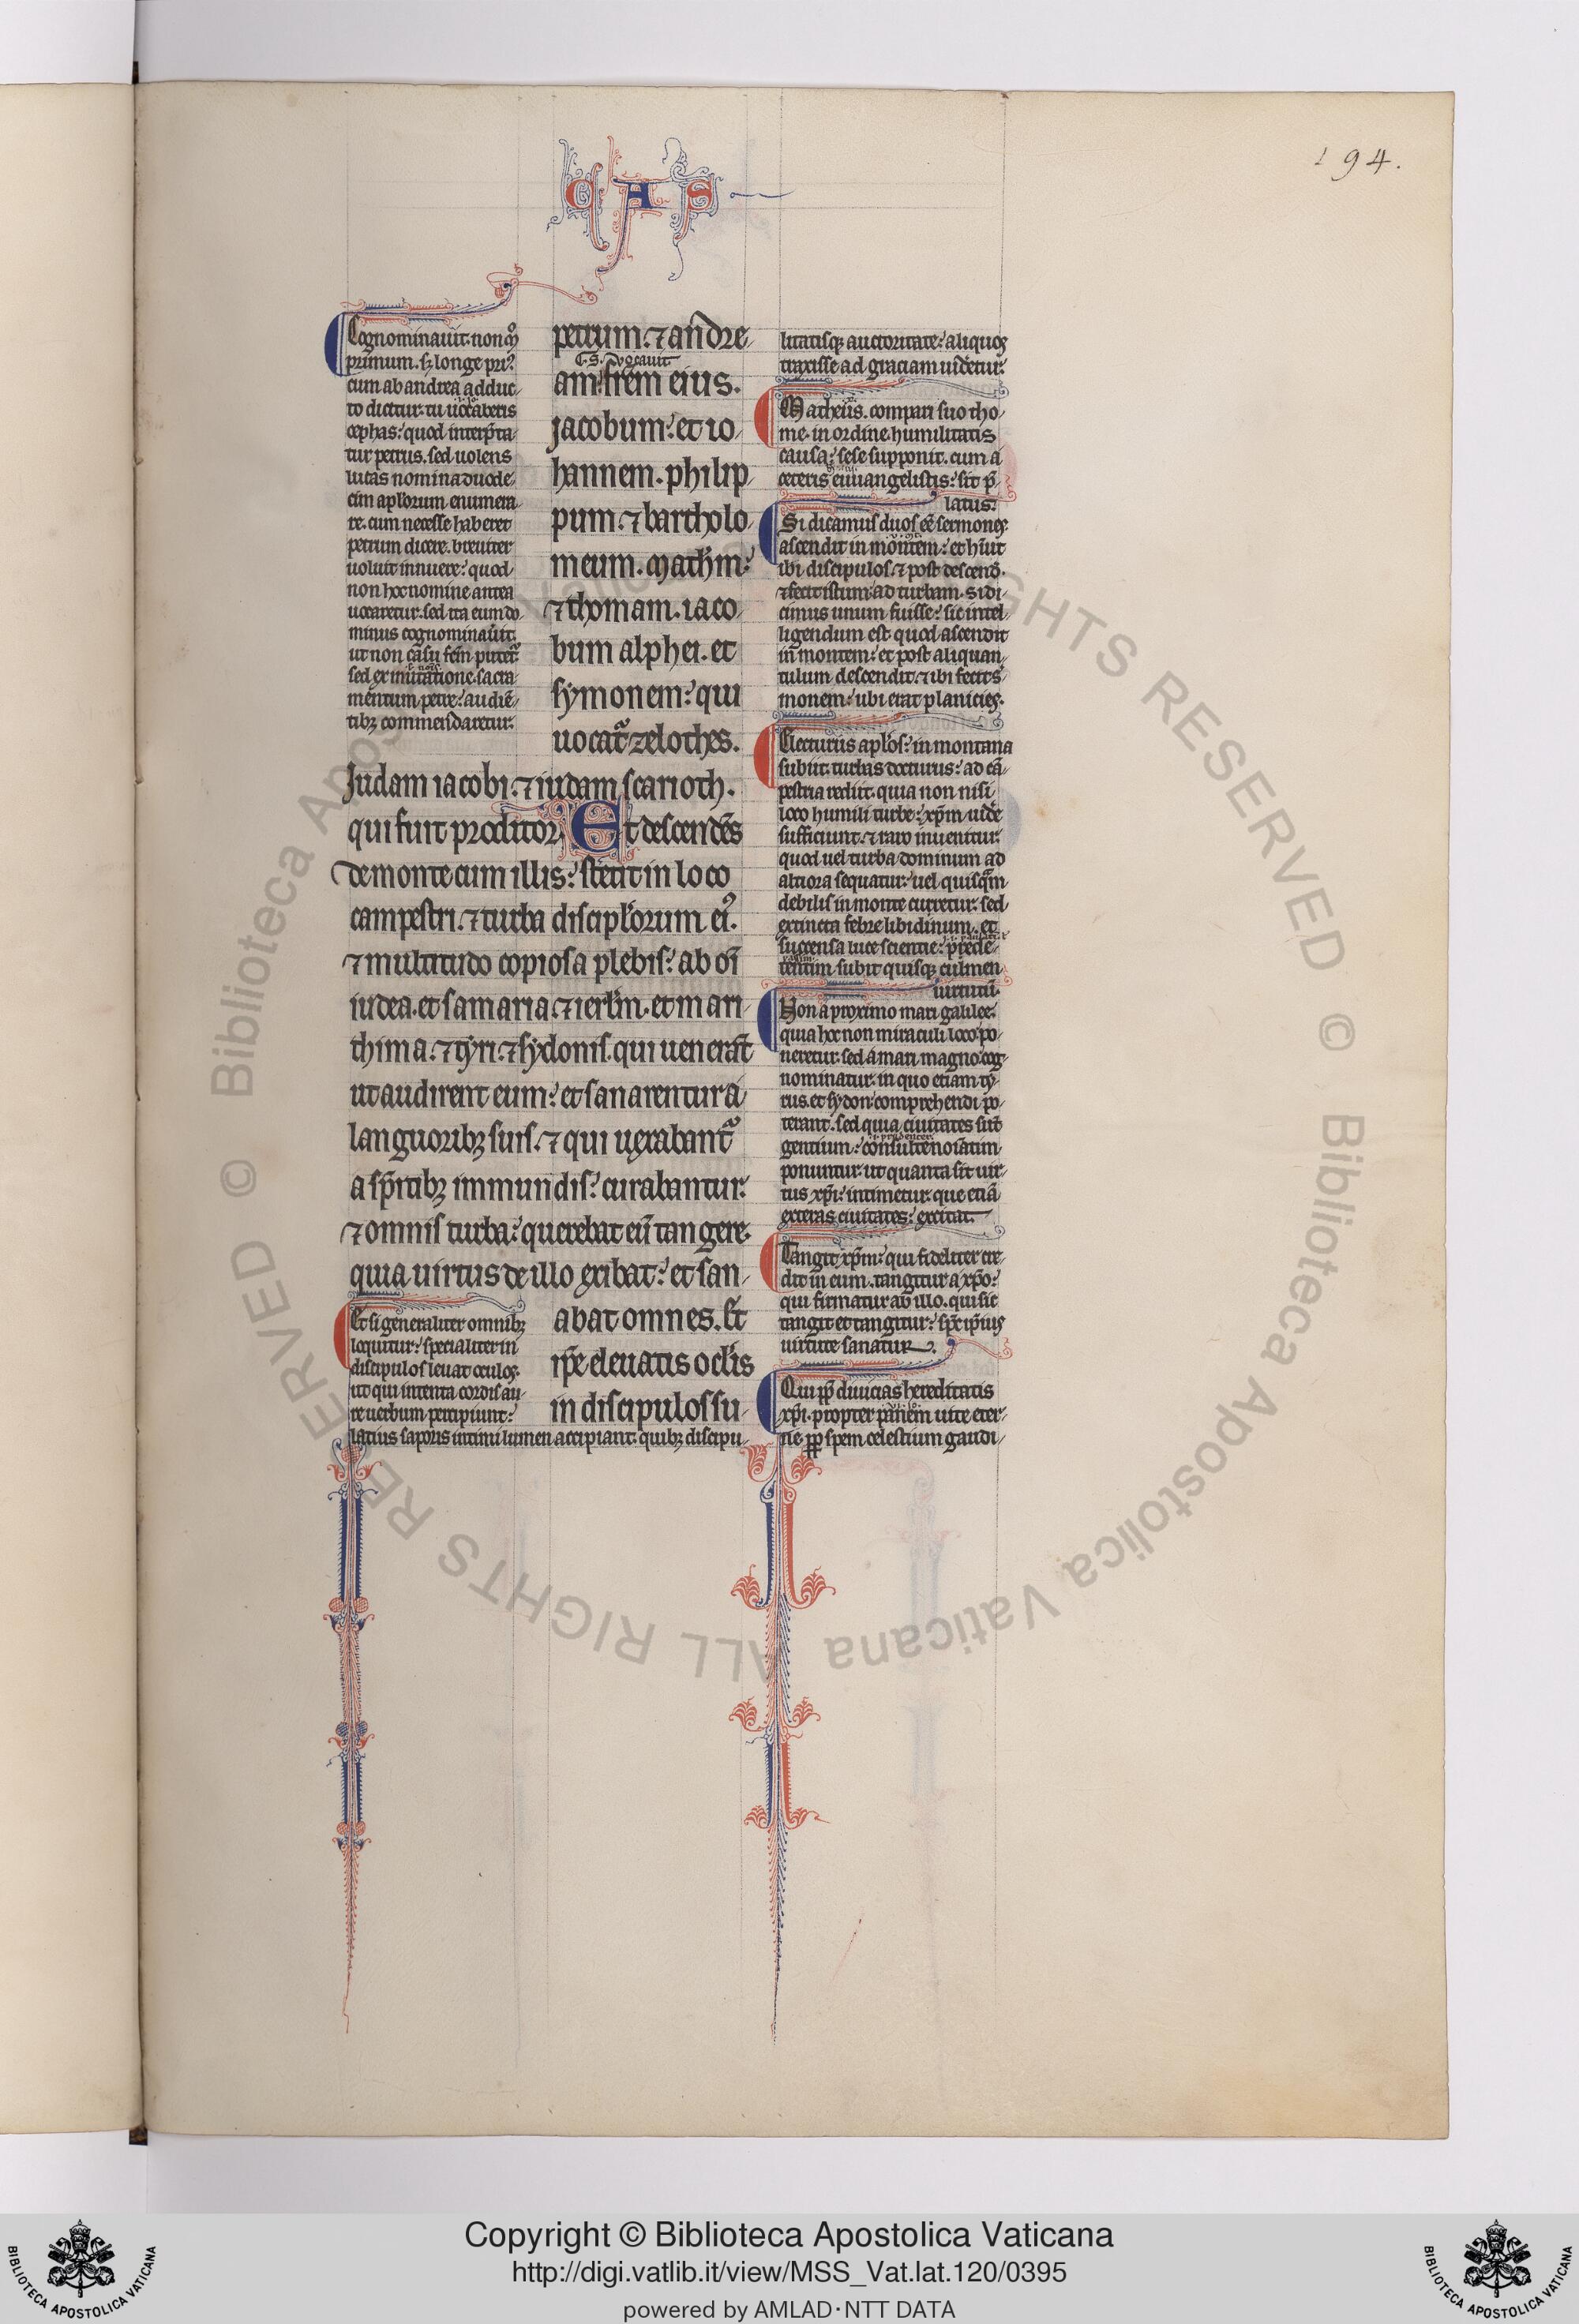 194.
CAS
Cognominauit. non mº
primum. sꝫ longe pri᷒.
cum ab andrea adduc-
to dicitur. tu uocaberis
cephas: quod interp̄ta-
tur petrus. sed uolens
lucas nomina duode-
cim apl̓orum enumera-
re. cum necesse haberet
petrum dicere. breuiter
uoluit innuere: quod
non hoc nomine antea
uocaretur. sed ita eum do-
minus cognominauit.
ut non casu
sed ex mutatione. sacra-
mentum petre: audiē-
tibꝫ commendaretur.
petrum. ⁊ andre-
.C.S. vocauit
am fr̄em eius.
jacobum: et io-
hannem. philip-
pum. ⁊ bartholo-
meum. math̄m:
⁊ thomam. iaco-
bum alphei. et
symonem: qui
uocat᷑ zelothes.
Iudam iacobi. ⁊ iudam scarioth.
qui fuit proditor. Et descendēs
de monte cum illis: stetit in loco
campestri. ⁊ turba discipl̓orum ei᷒.
⁊ multitudo copiosa plebis: ab oī
iudea. et samaria. ⁊ ierl̄m. et mari-
thima. ⁊ tyri. ⁊ sydonis. qui uenerāt
ut audirent eum: et sanarentur a
languoribꝫ suis. ⁊ qui uexabant᷑
a sp̄ritibꝫ immundis: curabantur.
⁊ omnis turba: querebat eū tangere.
quia uirtus de illo exibat: et san-
abat omnes. Et
ip̄e eleuatis ocl̓is
in discipulos su-
Et si generaliter omnibꝫ
loquitur: specialiter in
discipulos leuat oculos.
ut qui intenta cordis au-
re uerbum percipiunt:
latius saporis intimi lumen accipiant. quibꝫ discipu-
litatisqꝫ auctoritate: aliquos
traxisse ad graciam uidetur.
Matheus. compari suo tho-
me. in ordine humilitatis
causa: sese supponit. cum a
ceteris euuangelistis: sit p̄-
latus.
Si dicamus duos eē sermones.
ascendit in montem: et hīuit
ibi discipulos. ⁊ post descend̄.
⁊ fecit istum. ad turbam. si di-
cimus unum fuisse: sic intel-
ligendum est quod ascendit
in montem: et post aliquan-
tulum descendit. ⁊ ibi fecit s̓-
monem: ubi erat planicies.
Electurus apl̓os: in montana
subiit. turbas docturus: ad cā-
pestria rediit. quia non nisi
loco humili turbe: xp̄m uide
sufficiunt. ⁊ raro inuenitur
quod uel turba dominum ad
altiora sequatur: uel quisq̄m
debilis in monte curetur. sed
extincta febre libidinum. et
succensa luce scientie: p̄rede-
tentim subit quisqꝫ culmen
uirtutū.
Non a proximo mari galilee.
quia hoc non miraculi loco po-
neretur. sed a mari magno cog-
nominatur. in quo etiam ty-
rus. et sydon comprehendi po-
terant. sed quia ciuitates sūt
.i. prudenter.
gentium: consulte nominatim
ponuntur. ut quanta sit uir-
tus xp̄i: intimetur. que etiā
exteras ciuitates: excitat.
Tangit xp̄m: qui fideliter cre-
dit in eum. tangitur a xp̄o:
qui firmatur ab illo. qui sic
tangit et tangitur: sp̄r ip̄ius
uirtute sanatur.
Qui pp̄ diuicias hereditatis
xp̄i. propter panem uite eter-
ne pp̄ spem celestium gaudi-
Copyright © Biblioteca Apostolica Vaticana
http://digi.vatlib.it/view/MSS_Vat.lat.120/0395
powered by AMLAD·NTT DATA
BIBLIOTECA APOSTOLICA VATICANA
BIBLIOTECA APOSTOLICA VATICANA
© Biblioteca Apostolica Vaticana ALL RIGHTS RESERVED © Biblioteca Apostolica Vaticana ALL RIGHTS RESERVED